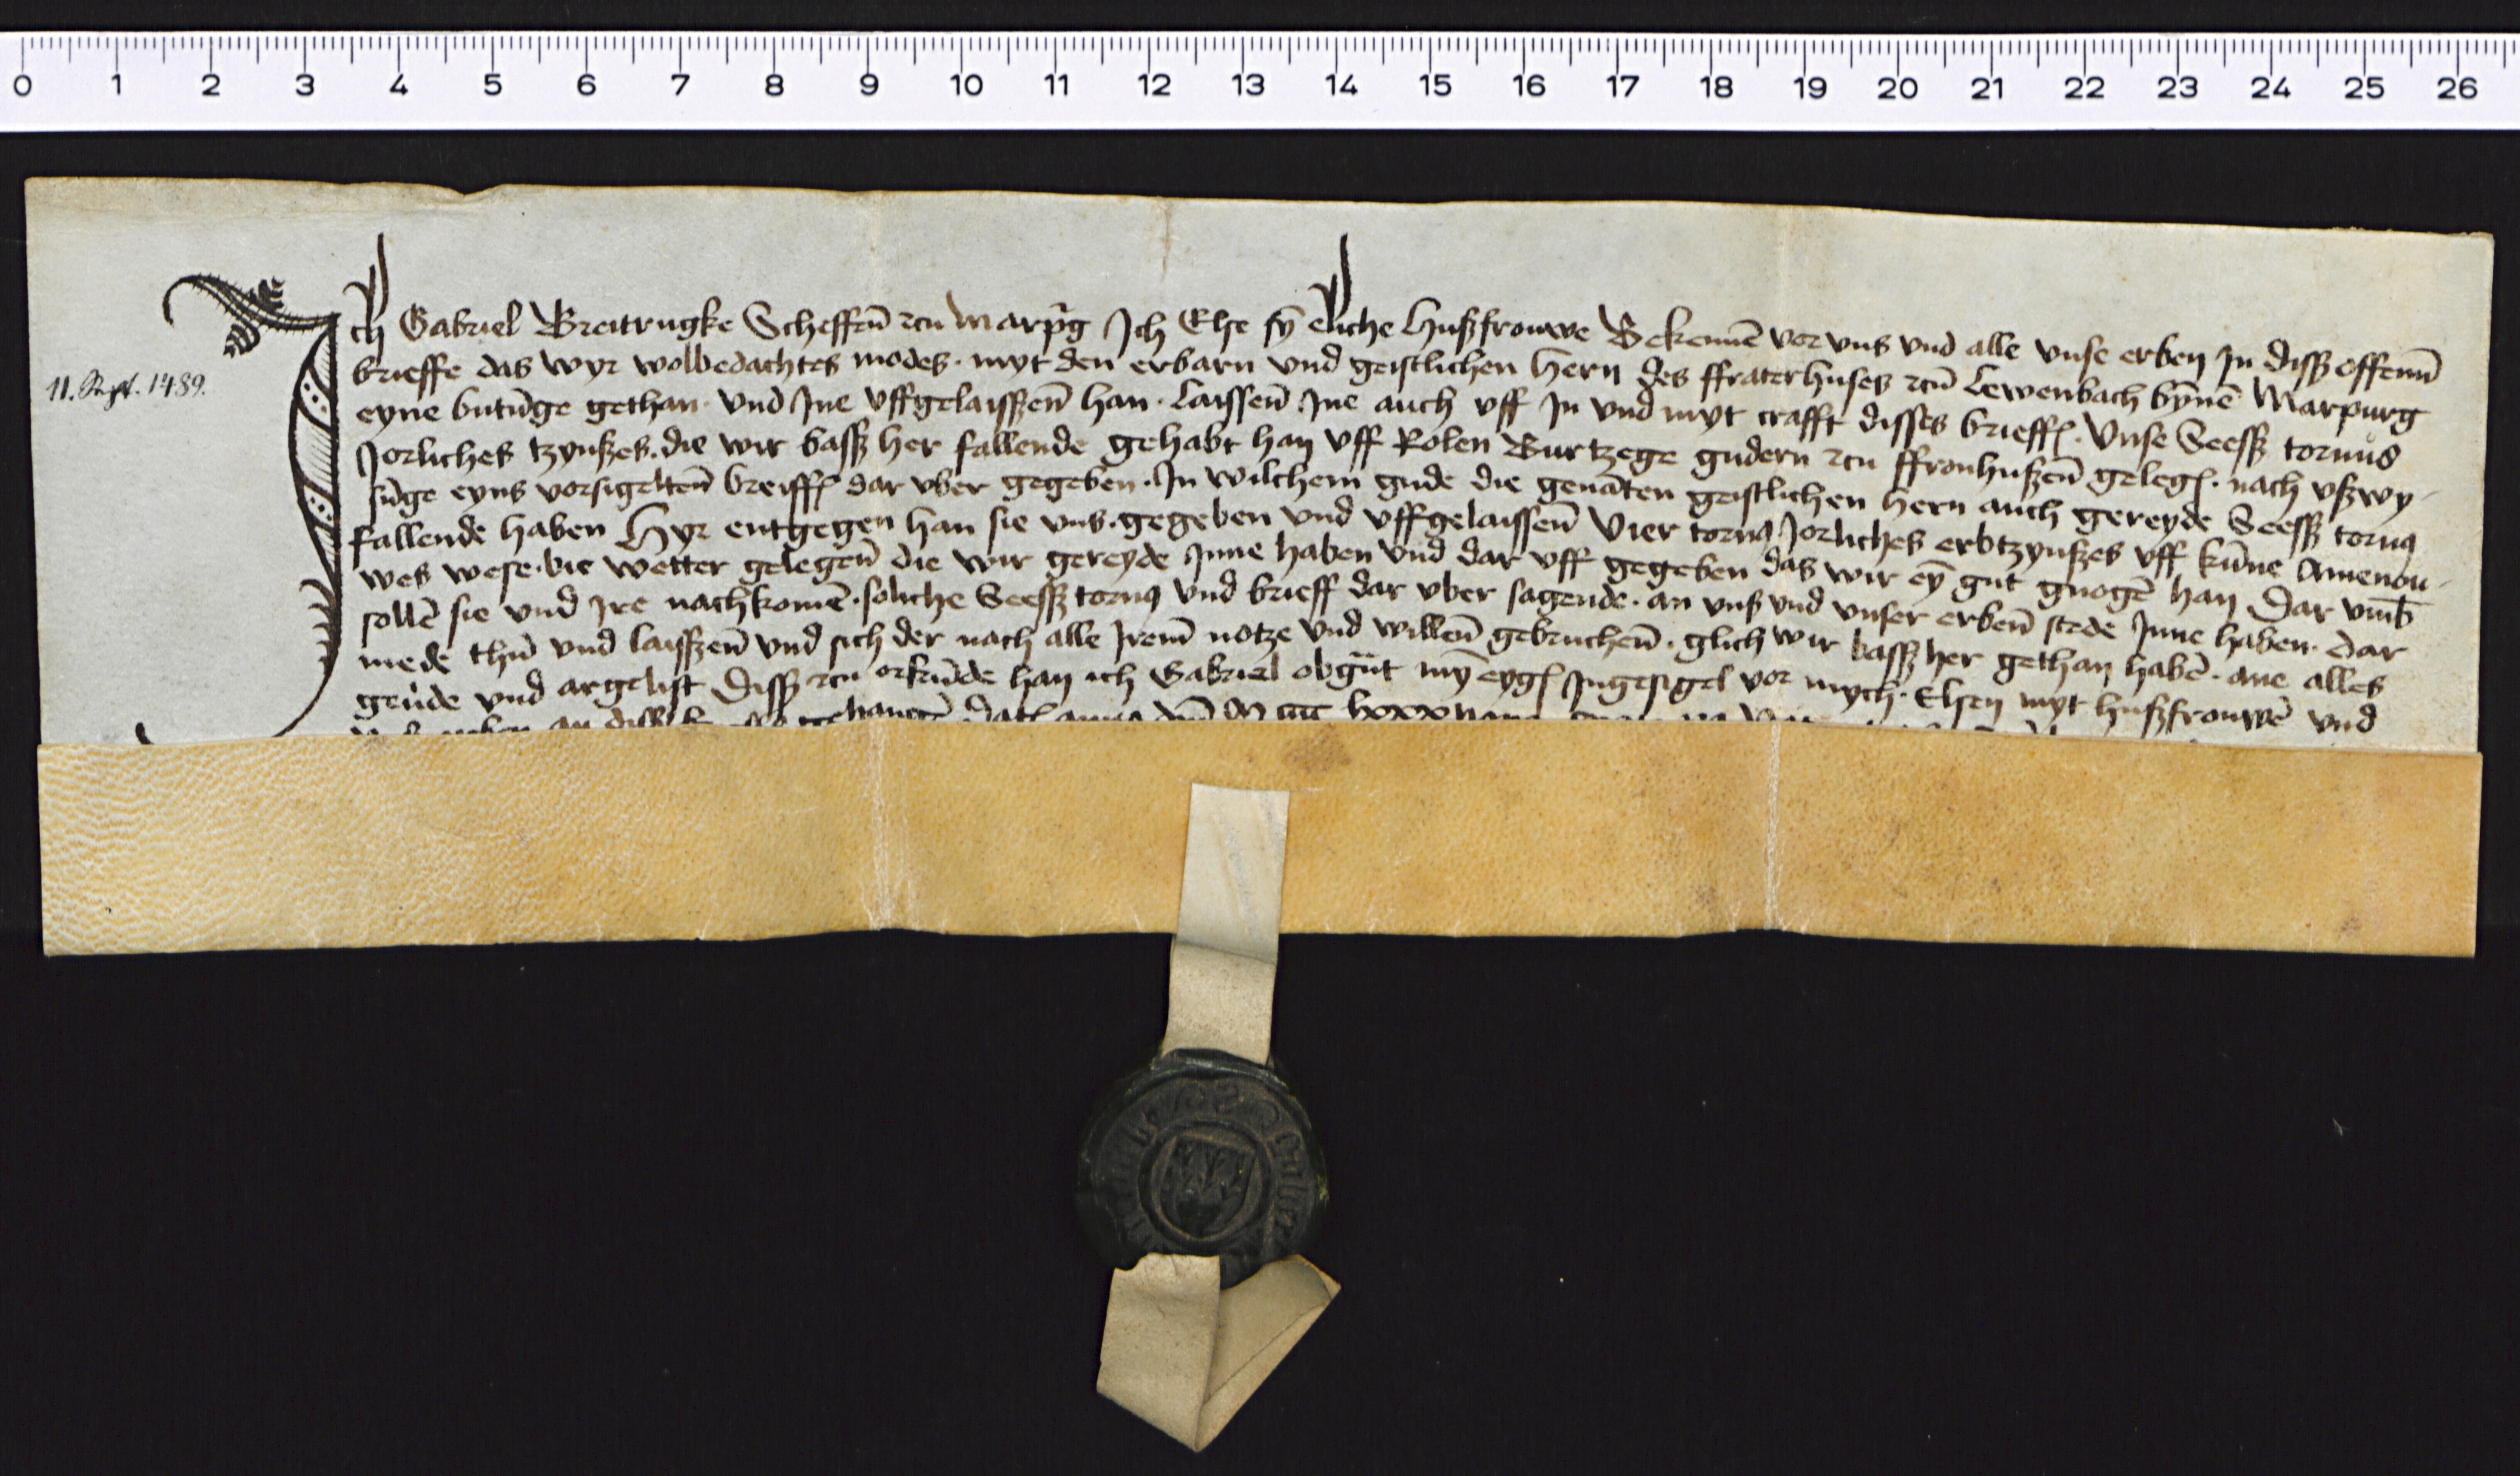 0 1 2 3 4 5 6 7 8 9 10 11 12 13 14 15 16 17 18 19 20 21 22 23 24 25 26
11. Sept. 1489.
Ich Gabriel Breitrugke Scheffen̄ zcu Marpʳg Ich Else sȳ eliche hußfrouwe Bekennē vor vns vnd alle vnse erben In disß offenn̄
brieffe das wyr wolbedachtes modes. myt den erbarn vnd geistlichen hern des ffraterhuses zcū Lewenbach bȳnē Marpurg
eyne butūge gethan. vnd Ine vffgelaissen̄ han. Laissen̄ Ine auch vff In vnd myt crafft disses brieff. vnse Seesß tornůs
Jorliches tzynßes. die wir basß her fallende gehabt han vff Rolen Burtzege gudern zcu ffronhußen̄ geleg. nach vßwy-
sūge eyns vorsigelten̄ breiff dar vber gegeben. In wilchem gude die genāten geistlichen hern auch gereyde Seesß torn
fallende haben Hyr entgegen han sie vns. gegeben vnd vffgelaissen̄ Vier torn Jorliches erbtzynßes vff kūne Amenou-
wes wese. bie wetter gelegen̄ die wir gereyde Inne haben vnd dar vff gegeben das wir eȳ gut gnogē han Dar vmb̄
sollē sie vnd Ire nachkomē. soliche Seesß torn vnd brieff dar vber sagende. an vns vnd vnser erben̄ stede Inne haben. dar
mede thū vnd laissen̄ vnd sich der nach alle Irem̄ notze vnd willen̄ gebruchen̄. glich wir basß her gethan habē. ane alles
geu̇de vnd argelist Disß zcu orkūde han ich Gabriel obgn̄t mȳ eyg Ingesigel vor mych. Elsen myt hußfrouwē vnd
an gehangē Dat anno dn̄i M